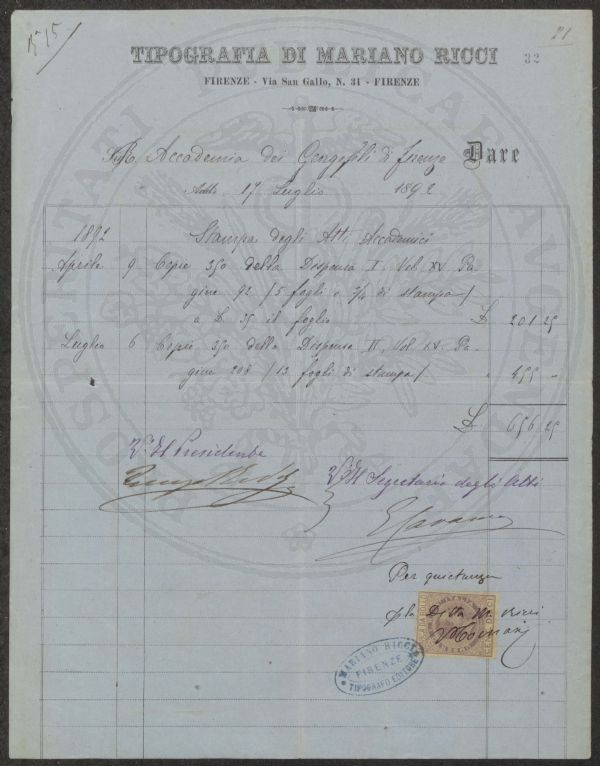 N° 15
21
TIPOGRAFIA DI MARIANO RICCI
32
FIRENZE - Via San Gallo, N. 31 - FIRENZE
R. Accademia dei Georgofili di Firenze Dare
Addì 17 Luglio 1892
1892 Stampa degli Atti Accademici
Aprile 9 Copie 350 della Dispensa I. Vol. XV. Pa-
gine 92 / 5 fogli e 3/4 di stampa /
a L. 35 il foglio L. 201 25
Luglio 6 Copie 350 della Dispensa II. Vol. XV. Pa-
gine 208 / 13 fogli di stampa / " 455 "
L. 656 25
V° Il Presidente
V° Il Segretario degli Atti
Per quietanza
p la Ditta M. Ricci
MARIANO RICCI
FIRENZE
TIPOGRAFO EDITORE